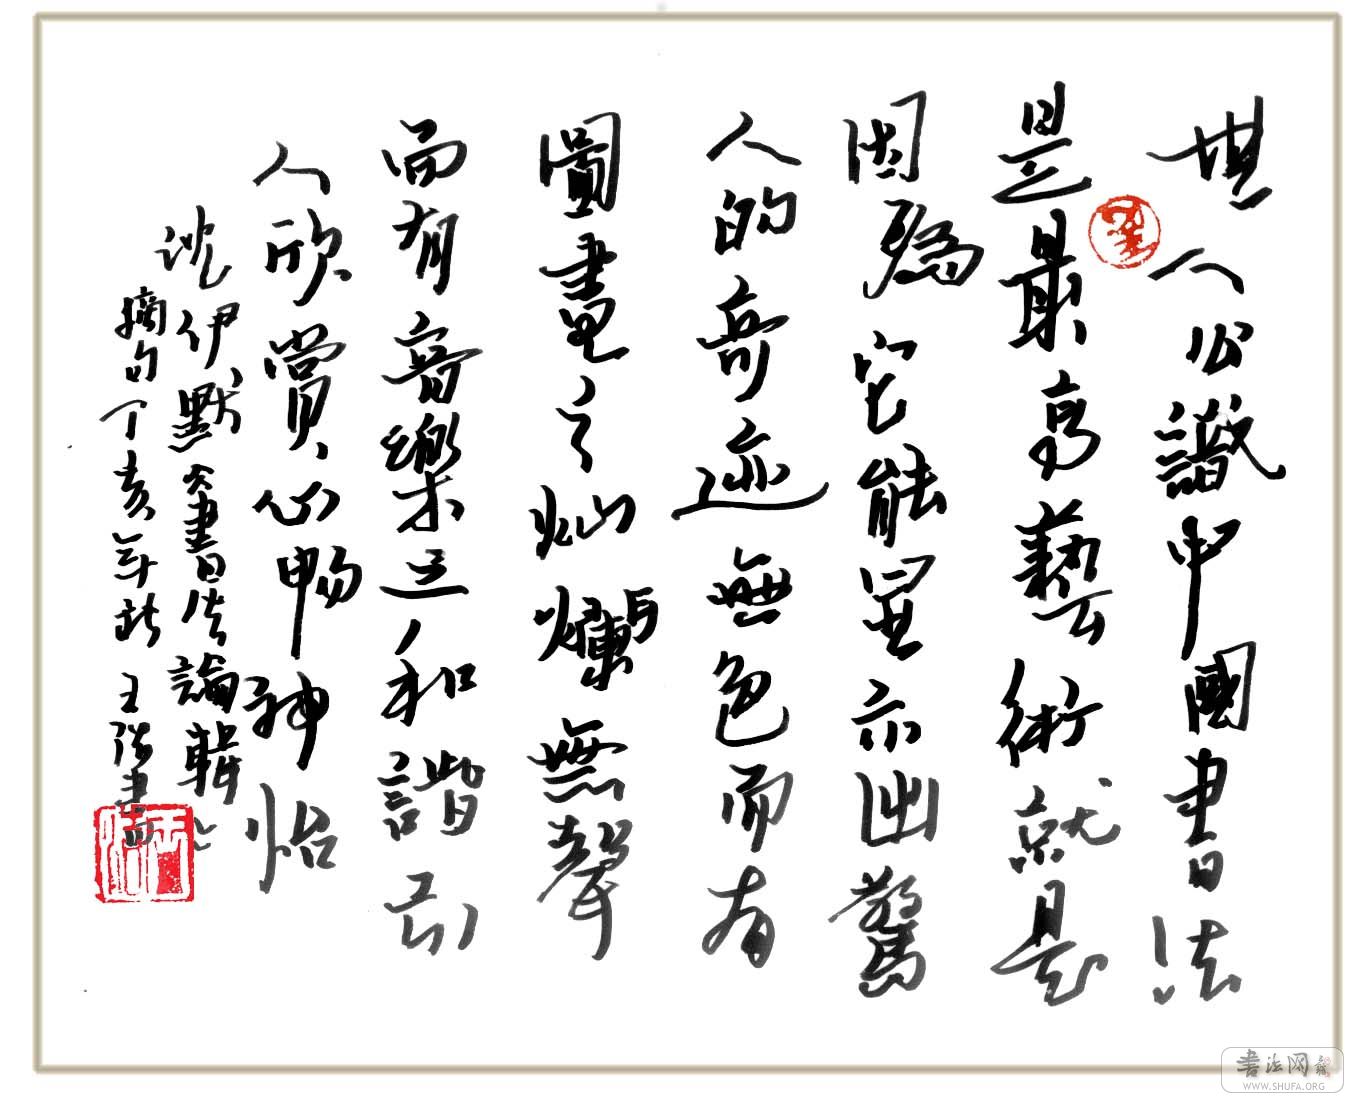 世人公識中國書法
是最高藝術就是
因為它能显示出驚
人的奇迹無色而有
圖畫之灿爛無聲
而有音樂之和諧引
人欣賞心畅神怡
沈伊默書法論輯
摘句丁亥年秋王 書
書法网
WWW.SHUFA.ORG